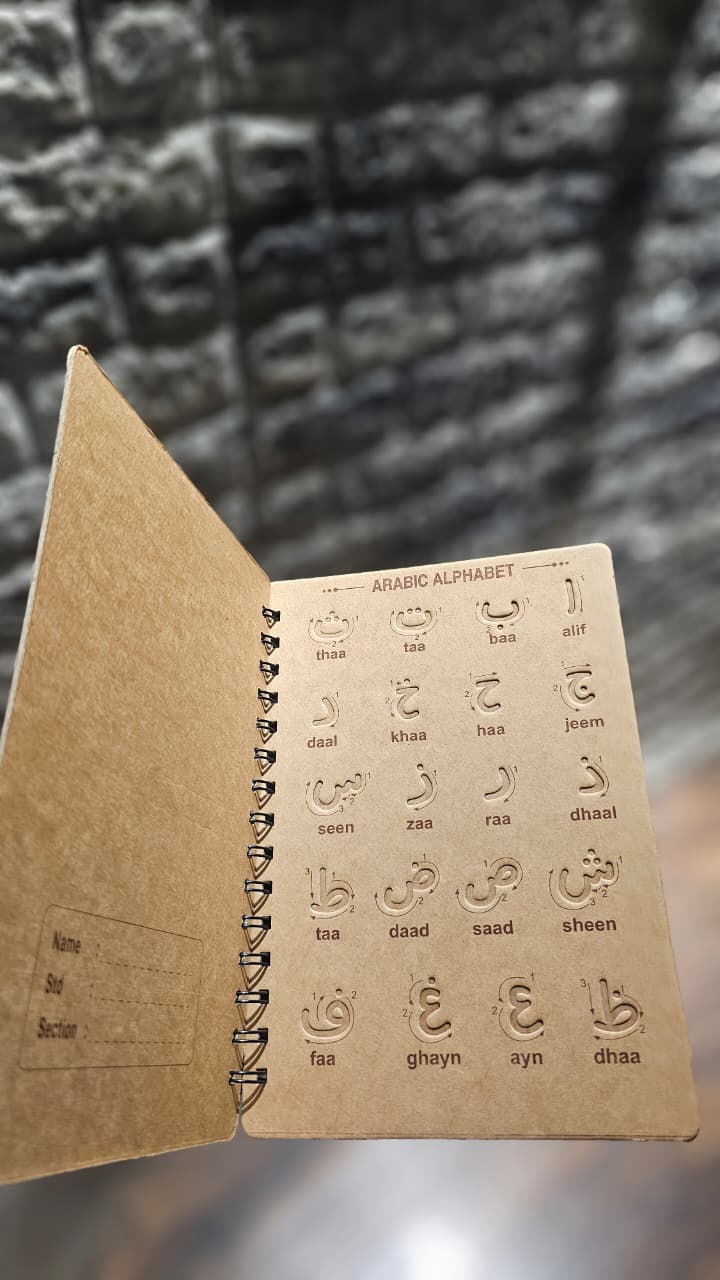 Name :
Std :
Section :
ARABIC ALPHABET
ا ب ت ث
thaa taa baa alif
ج ح خ د
daal khaa haa jeem
ذ ر ز س
seen zaa raa dhaal
ش ص ض ط
taa daad saad sheen
ظ ع غ ف
faa ghayn ayn dhaa